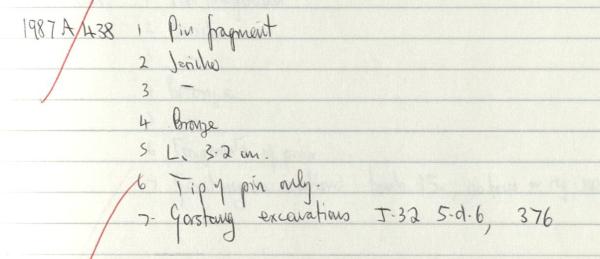 1987 A 438 1 Pin fragment
2 Jericho
3 –
4 Bronze
5 L. 3.2 cm.
6 Tip of pin only.
7. Garstang excavations J.32 5.d.6, 376